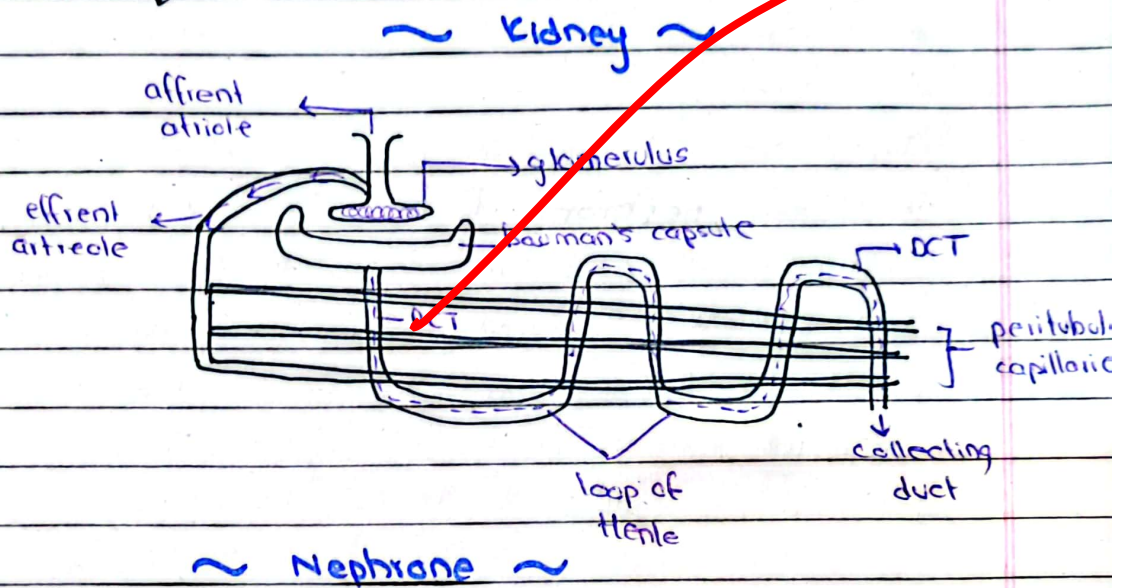 ~ Kidney ~
affrent
atriole
glomerulus
effrent
artreole
bowman's capsule
DCT
PCT
peritubul
capillarie
collecting
duct
loop of
Henle
~ Nephrone ~